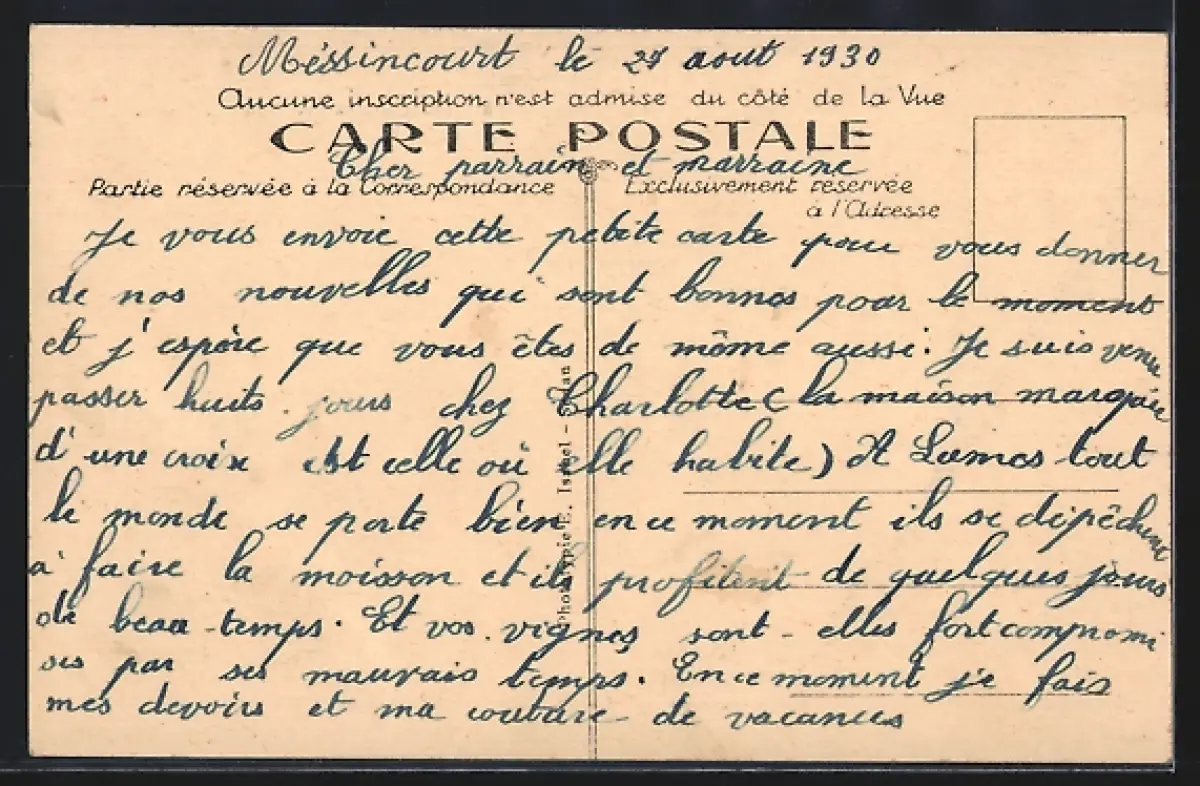 Méssincourt le 27 aout 1930
Aucune inscription n'est admise du côté de la Vue
CARTE POSTALE
Cher parrain et marraine
Partie réservée à la Correspondance
Exclusivement réservée
à l'Adresse
Je vous envoie cette petite carte pour vous donner
de nos nouvelles qui sont bonnes pour le moment
et j'espère que vous êtes de même aussi. Je suis venu
passer huits jours chez Charlotte (la maison marquée
d'une croix est celle où elle habite) A Lames tout
le monde se porte bien en ce moment ils se dépêchent
à faire la moisson et ils profitent de quelques jours
de beau-temps. Et vos vignes sont-elles fort compromi
ses par ses mauvais temps. En ce moment je fais
mes devoirs et ma couture de vacances
Phototypie E. Ismael - Nan